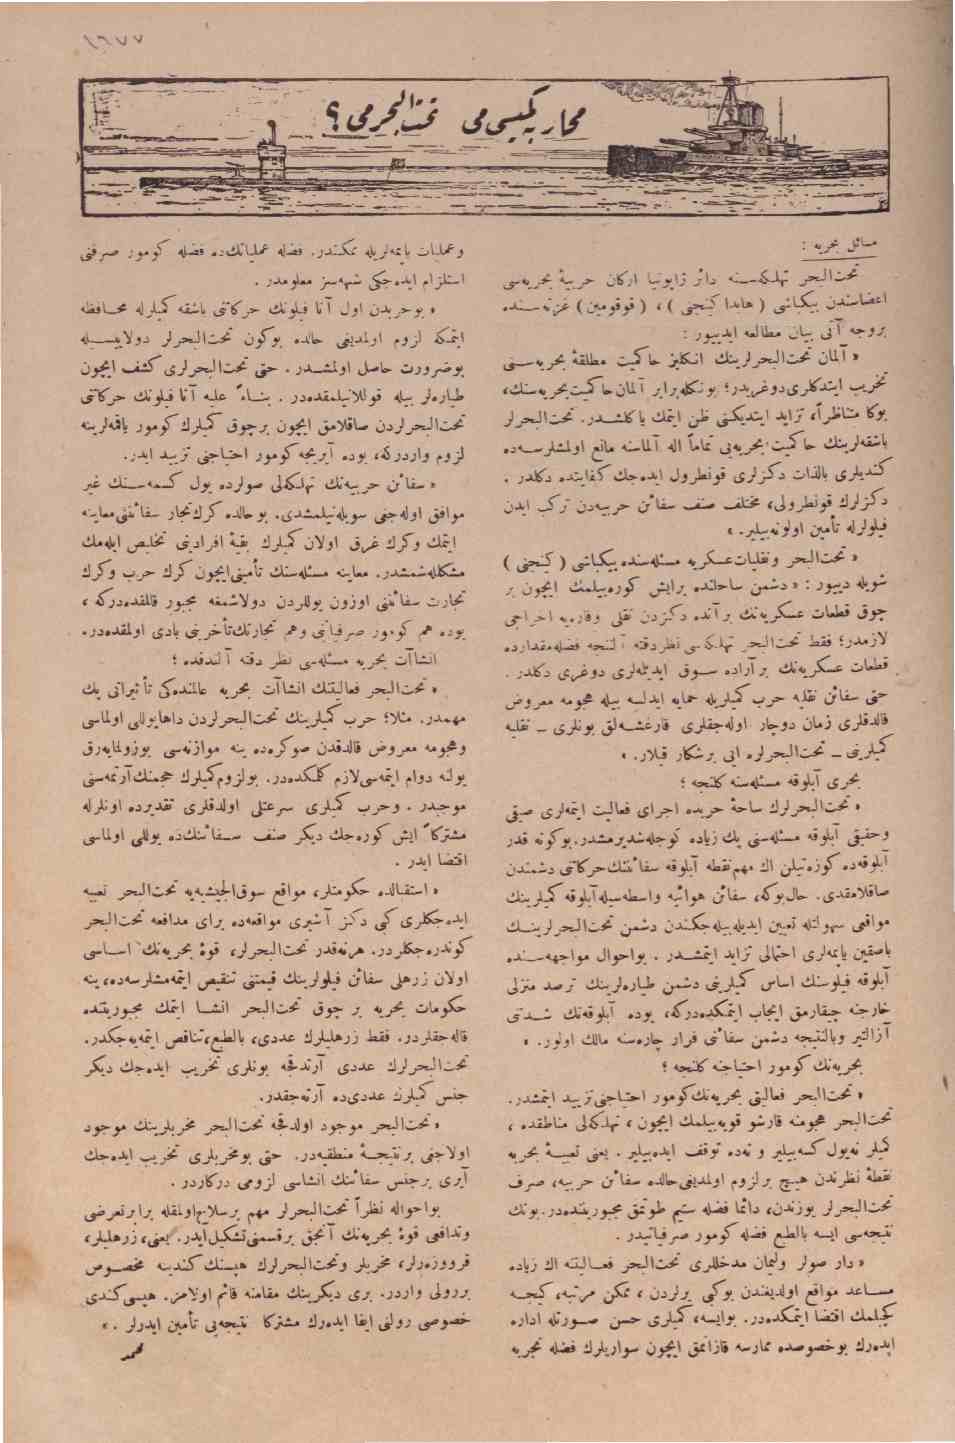 ١٦٧٧
محاربه گمیسی می تحت‌البحرمی ؟
مسائل بحریه :
تحت‌البحر تهلكه‌سنه دائر ژاپونیا اركان حربیهٔ بحریه‌سی
اعضاسندن بیكباشی ( هایدا كینجی ) ، ( قوقومین ) غزته‌سنده
بروجه آتی بیان مطالعه ایدییور :
« آلمان تحت‌البحرلرینك انكلیز حاكمیت مطلقهٔ بحریه‌سنی
تخریب ایتدكلری دوغریدر؛ بونكله برابر آلمان حاكمیت بحریه‌سنك،
بوكا متناظراً، تزاید ایتدیكنی ظن ایتمك یاكلشدر. تحت‌البحرلر
باشقه‌لرینك حاكمیت بحریه‌یی تماماً اله آلماسنه مانع اولمشلرسه‌ده
كندیلری بالذات دكزلری قونطرول ایده‌جك كفایتده دكلدر .
دكزلرك قونطرولی، مختلف صنف سفائن حربیه‌دن تركب ایدن
فیلولرله تأمین اولونه‌بیلیر. »
« تحت‌البحر ونقلیات عسكریه مسئله‌سنده بیكباشی ( كینجی )
شویله دییور : « دشمن ساحلنده برایش كوره‌بیلمك ایچون بر
چوق قطعات عسكریه‌نك برآنده دكزدن نقلی وقاره‌یه اخراجی
لازمدر؛ فقط تحت‌البحر تهلكه‌سی نظر دقته آلنجه فضله مقدارده
قطعات عسكریه‌نك برآراده سوق ایدیلمه‌لری دوغری دكلدر .
حتی سفائن نقلیه حرب كمیلریله حمایه ایدلسه بیله هجومه معروض
قالدقلری زمان دوچار اوله‌جقلری قارغشه‌لق بونلری ــ نقلیه
كمیلرینی ــ تحت‌البحرلره ایی برشكار قیلار. »
بحری آبلوقه مسئله‌سنه كلنجه ؛
« تحت‌البحرلرك ساحهٔ حربده اجرای فعالیت ایتمه‌لری صیقی
وحقیقی آبلوقه مسئله‌سنی پك زیاده كوجله‌شدیرمشدر. بوكونه قدر
آبلوقه‌ده كوزه‌تیلن اك مهم نقطه آبلوقه سفائننك حركاتنی دشمندن
صاقلامقدی. حال بوكه، سفائن هوائیه واسطه‌سیله آبلوقه كمیلرینك
مواقعی سهولتله تعیین ایدیله‌بیله‌جكندن دشمن تحت‌البحرلرینك
باصقین یاپمه‌لری احتمالی تزاید ایتمشدر . بو احوال مواجهه‌سنده
آبلوقه فیلوسنك اساس كمیلرینی دشمن طیاره‌لرینك ترصد منزلی
خارجنه چیقارمق ایجاب ایتمكده‌دركه، بوده آبلوقه‌نك شدتنی
آزالتیر وبالنتیجه دشمن سفائنی فرار چاره‌سنه مالك اولور. »
بحریه‌نك كومور احتیاجنه كلنجه ؟
« تحت‌البحر فعالیتی بحریه‌نك كومور احتیاجنی تزیید ایتمشدر.
تحت‌البحر هجومنه قارشو قویه‌بیلمك ایچون ، تهلكه‌لی مناطقده ،
كمیلر نه یول كسه‌بیلیر و نه‌ده توقف ایده‌بیلیر . یعنی تعبیهٔ بحریه
نقطهٔ نظرندن هیچ بر لزوم اولمدیغی حالده سفائن حربیه، صرف
تحت‌البحرلر یوزندن، دائما فضله ستیم طوتمق مجبوریتنده‌در. بونك
نتیجه‌سی ایسه بالطبع فضله كومور صرفیاتیدر .
« دار صولر ولیمان مدخللری تحت‌البحر فعالیتنه اك زیاده
مساعد مواقع اولدیغندن بوكبی یرلردن ، ممكن مرتبه، كیجه
كچیلمك اقتضا ایتمكده‌در. بوایسه، كمیلری حسن صورتله اداره
ایده‌رك بوخصوصده ممارسه قازانمق ایچون سواریلرك فضله تجربه
وعملیات یاپمه‌لریله ممكندر. فضله عملیاتك‌ده فضله كومور صرفنی
استلزام ایده‌جكی شبهه‌سز معلومدر .
« بوحربدن اول آنا فیلونك حركاتنی باشقه كمیلرله محافظه
ایتمكه لزوم اولمدیغی حالده بوكون تحت‌البحرلر دولاییسیله
بوضرورت حاصل اولمشدر . حتی تحت‌البحرلری كشف ایچون
طیاره‌لر بیله قوللانیلمقده‌در . بناءً علیه آنا فیلونك حركاتنی
تحت‌البحرلردن صاقلامق ایچون برچوق كمیلرك كومور یاقمه‌لرینه
لزوم واردركه، بوده آیریجه كومور احتیاجنی تزیید ایدر.
« سفائن حربیه‌نك تهلكه‌لی صولرده یول كسمه‌سنك غیر
موافق اوله‌جغنی سویله‌نیلمشدی. بوحالده كرك تجار سفائننی معاینه
ایتمك وكرك غرق اولان كمیلرك بقیهٔ افرادینی تخلیص ایله‌مك
مشكلله‌شمشدر. معاینه مسئله‌سنك تأمینی ایچون كرك حرب وكرك
تجارت سفائننی اوزون یوللردن دولاشمغه مجبور قالمقده‌دركه ،
بوده هم كومور صرفیاتنی وهم تجارتك تأخرینی بادی اولمقده‌در.
انشاآت بحریه مسئله‌سی نظر دقته آلندقده ؛
« تحت‌البحر فعالیتنك انشاآت بحریه عالمنده‌كی تأثیراتی پك
مهمدر. مثلا؛ حرب كمیلرینك تحت‌البحرلردن داها یوللی اولماسی
وهجومه معروض قالدقدن صوكره‌ده ینه موازنه‌سی بوزولمایه‌رق
یولنه دوام ایتمه‌سی لازم كلمكده‌در. بولزوم كمیلرك حجمنك آرتمه‌سنی
موجبدر . وحرب كمیلری سرعتلی اولدقلری تقدیرده اونلرله
مشتركاً ایش كوره‌جك دیكر صنف سفائنك‌ده یوللی اولماسی
اقتضا ایدر .
« استقبالده حكومتلر، مواقع سوق‌الجیشیه‌یه تحت‌البحر تعبیه
ایده‌جكلری كبی دكز آشیری مواقعه‌ده برای مدافعه تحت‌البحر
كوندره‌جكلردر. هرنه‌قدر تحت‌البحرلر، قوهٔ بحریه‌نك اساسی
اولان زرهلی سفائن فیلولرینك قیمتنی تنقیص ایتمه‌مشلرسه‌ده، ینه
حكومات بحریه بر چوق تحت‌البحر انشا ایتمك مجبوریتنده
قاله‌جقلردر. فقط زرهلیلرك عددی، بالطبع، تناقص ایتمه‌یه‌جكدر.
تحت‌البحرلرك عددی آرتدقجه بونلری تخریب ایده‌جك دیكر
جنس كمیلرك عددی‌ده آرته‌جقدر.
« تحت‌البحر موجود اولدقجه تحت‌البحر مخربلرینك موجود
اولاجغی برنتیجهٔ منطقیه‌در. حتی بومخربلری تخریب ایده‌جك
آیری برجنس سفائنك انشاسی لزومی دركاردر .
بواحواله نظراً تحت‌البحرلر مهم برسلاح اولمقله برابر تعرضی
وتدافعی قوهٔ بحریه‌نك آنجق برقسمنی تشكیل ایدر. یعنی، زرهلیلر،
قرووزه‌رلر، مخربلر وتحت‌البحرلرك هپسنك كندینه مخصوص
بررولی واردر. بری دیكرینك مقامنه قائم اولامز. هپسی كندی
خصوصی رولنی ایفا ایده‌رك مشتركا نتیجه‌یی تأمین ایدرلر . »
محمد